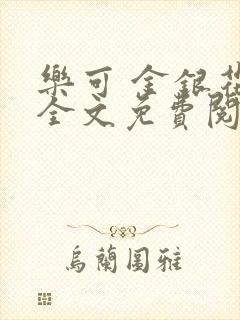 樂可 金銀花
全文免費閱
烏蘭圖雅